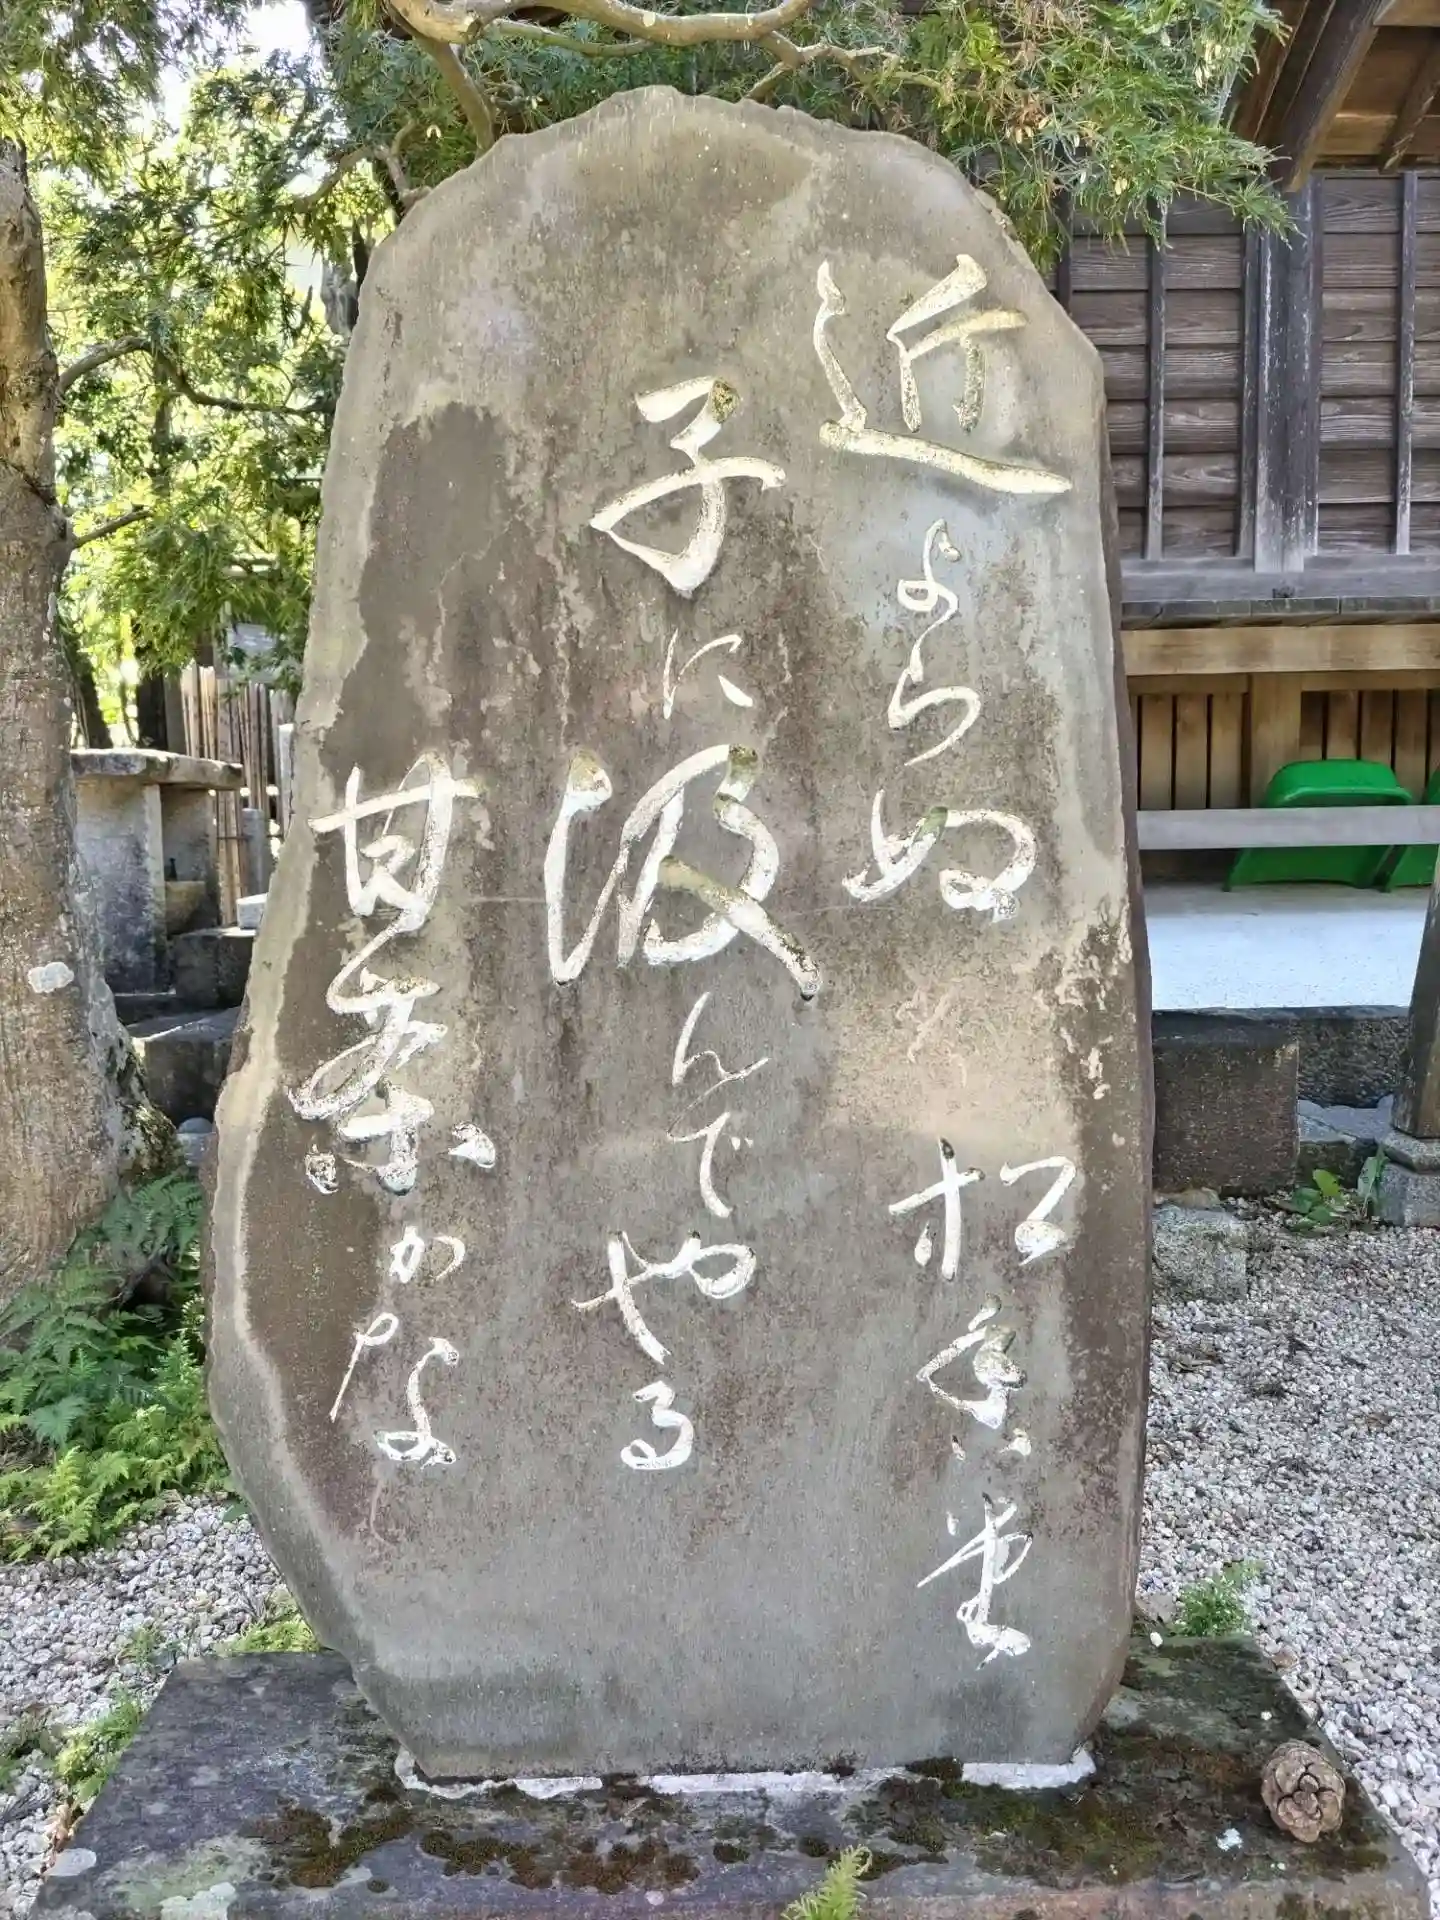 近よらぬ
子に汲んでやる
甘茶かな
松